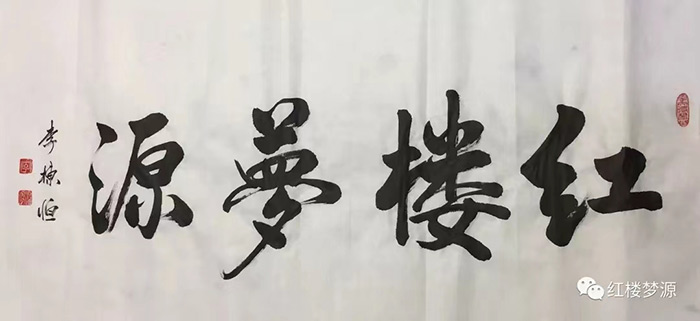 红楼夢源
李棟恒
红楼梦源